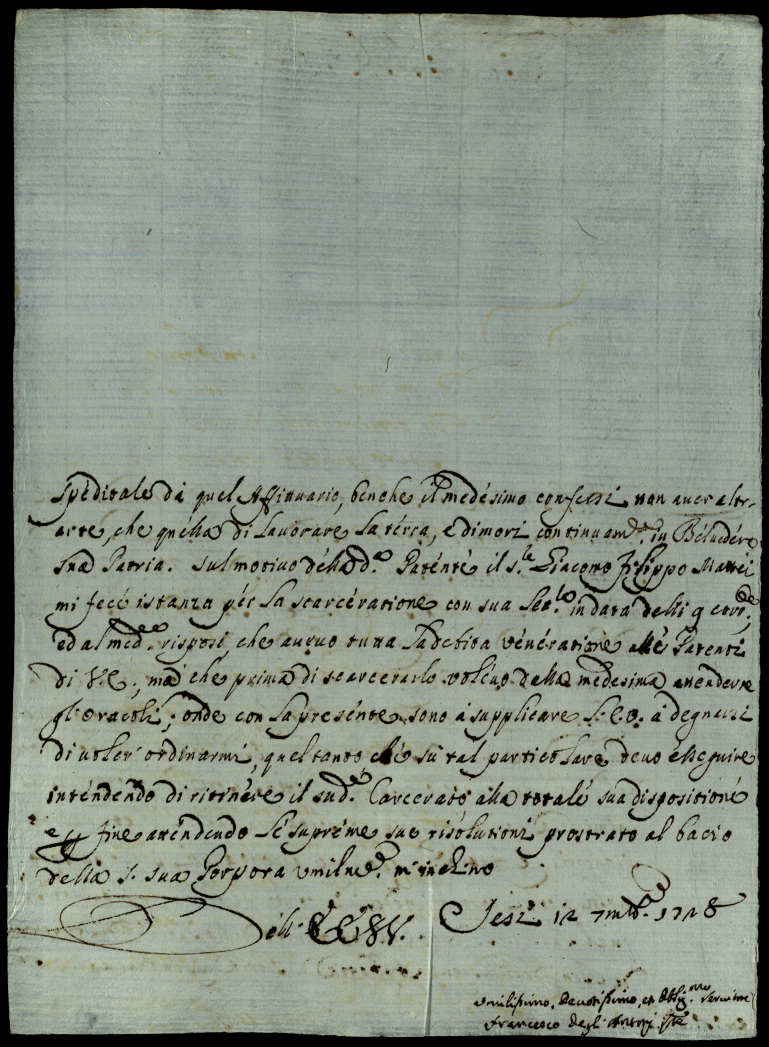 speditale da quel Affittuario, benche il medesimo confessi non aver altr'
arte, che quella di lavorare la terra, e dimori continuam.te in Belvedere
sua Patria. Sul motivo della d.a Patente il s.r Giacomo Filippo Mattei
mi fece istanza per la scarceratione con sua in data delli 9 corr.te,
ed al med.o risposi, che avevo tutta la debita veneratione alle Patenti
di V.E.; mà che prima di scarcerarlo volevo dalla medesima attenderne
gl'oracoli; onde con la presente sono à supplicare à degnarsi
di voler ordinarmi, quel tanto che sù tal particolare devo esseguire
intendendo di ritenere il sud.o Carcerato alla totale sua dispositione
e fine attendendo le supreme sue risolutioni prostrato al bacio
della S. sua Porpora umilm.e m'inchino
Dell' Jesi 12 7mb.e 1728
Umilissimo, devotissimo, et oblig.mo servitore
Francesco degl'Antonj